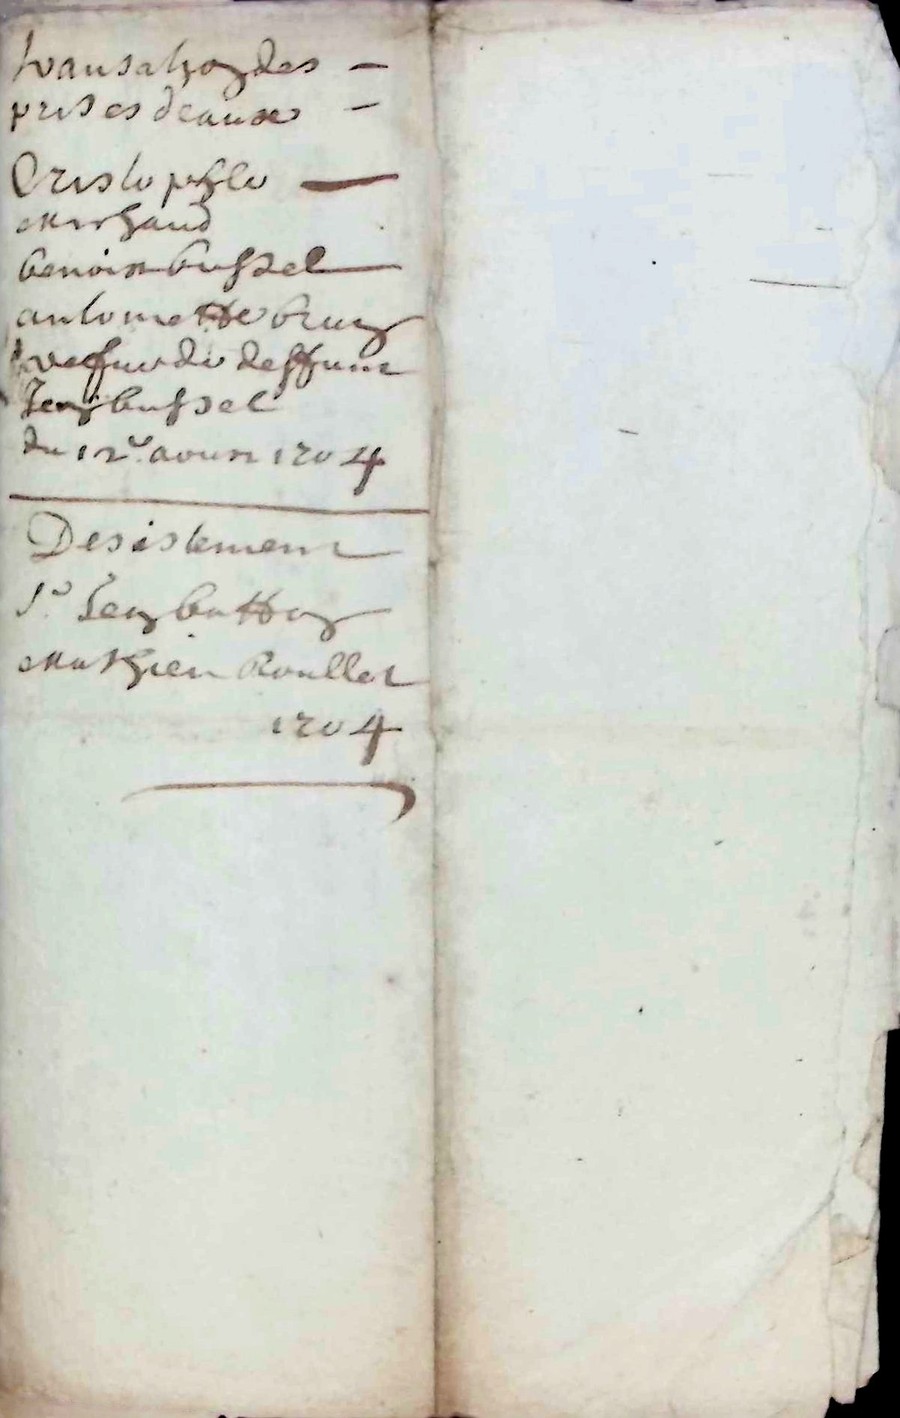 transaHon des
prises deaux
Cristophle
Michaud
benoist bussel
anthoinette brun
veffue de deffunt
Jean bussel
du 12e. aoust 1704
Desistement
Sr. Jean button
Mathieu Roullet
1704